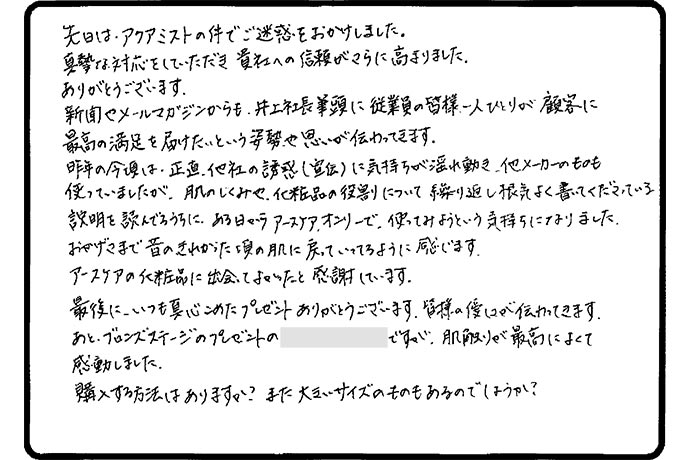 先日は、アクアミストの件でご迷惑をおかけしました。
真摯な対応をしていただき 貴社への信頼がさらに高まりました。
ありがとうございます。
新聞やメールマガジンからも、井上社長筆頭に従業員の皆様一人ひとりが 顧客に
最高の満足を届けたいという姿勢や思いが伝わってきます。
昨年の今頃は、正直、他社の誘惑(宣伝)に気持ちが揺れ動き、他メーカーのものも
使っていましたが、肌のしくみや、化粧品の役割りについて 繰り返し根気よく書いてくださっている
説明を読んでるうちに、ある日からアースケアオンリーで、使ってみようという気持ちになりました。
おかげさまで昔のきれかった頃の肌に戻っていってるように感じます。
アースケアの化粧品に出会えてよかったと 感謝しています。
最後に、いつも真心こめたプレゼントありがとうございます。皆様の優しさが伝わってきます。
あと、ブロンズステージのプレゼントの ですが、肌触りが最高によくて
感動しました。
購入する方法はありますか? また 大きいサイズのものもあるのでしょうか?